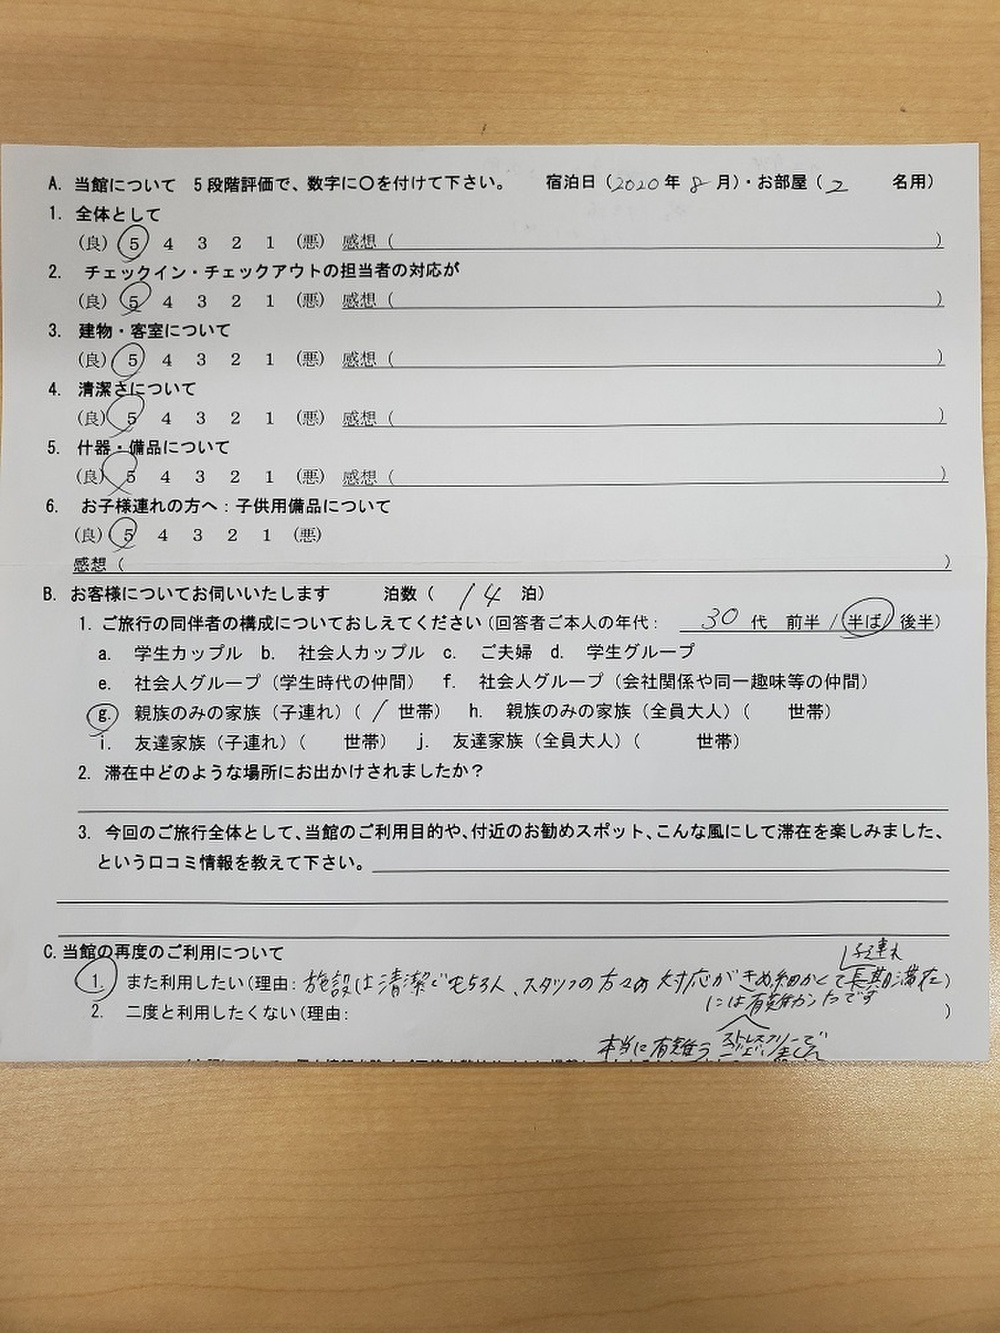 A. 当館について 5段階評価で、数字に〇を付けて下さい。 宿泊日（2020年 8月）・お部屋（2 名用）
1. 全体として
（良） 5 4 3 2 1 （悪） 感想（ ）
2. チェックイン・チェックアウトの担当者の対応が
（良） 5 4 3 2 1 （悪） 感想（ ）
3. 建物・客室について
（良） 5 4 3 2 1 （悪） 感想（ ）
4. 清潔さについて
（良） 5 4 3 2 1 （悪） 感想（ ）
5. 什器・備品について
（良） 5 4 3 2 1 （悪） 感想（ ）
6. お子様連れの方へ：子供用備品について
（良） 5 4 3 2 1 （悪）
感想（ ）
B. お客様についてお伺いいたします 泊数（ 14 泊）
1. ご旅行の同伴者の構成についておしえてください（回答者ご本人の年代： 30 代 前半 / 半ば / 後半）
a. 学生カップル b. 社会人カップル c. ご夫婦 d. 学生グループ
e. 社会人グループ（学生時代の仲間） f. 社会人グループ（会社関係や同一趣味等の仲間）
g. 親族のみの家族（子連れ）（ 1 世帯） h. 親族のみの家族（全員大人）（ 世帯）
i. 友達家族（子連れ）（ 世帯） j. 友達家族（全員大人）（ 世帯）
2. 滞在中どのような場所にお出かけされましたか？
3. 今回のご旅行全体として、当館のご利用目的や、付近のお勧めスポット、こんな風にして滞在を楽しみました、
という口コミ情報を教えて下さい。
C. 当館の再度のご利用について
子連れ
1. また利用したい（理由：施設は清潔でもちろん、スタッフの方々の対応がきめ細かくて長期滞在）
には有難かったです
2. 二度と利用したくない（理由： ）
ストレスフリーで
本当に有難う